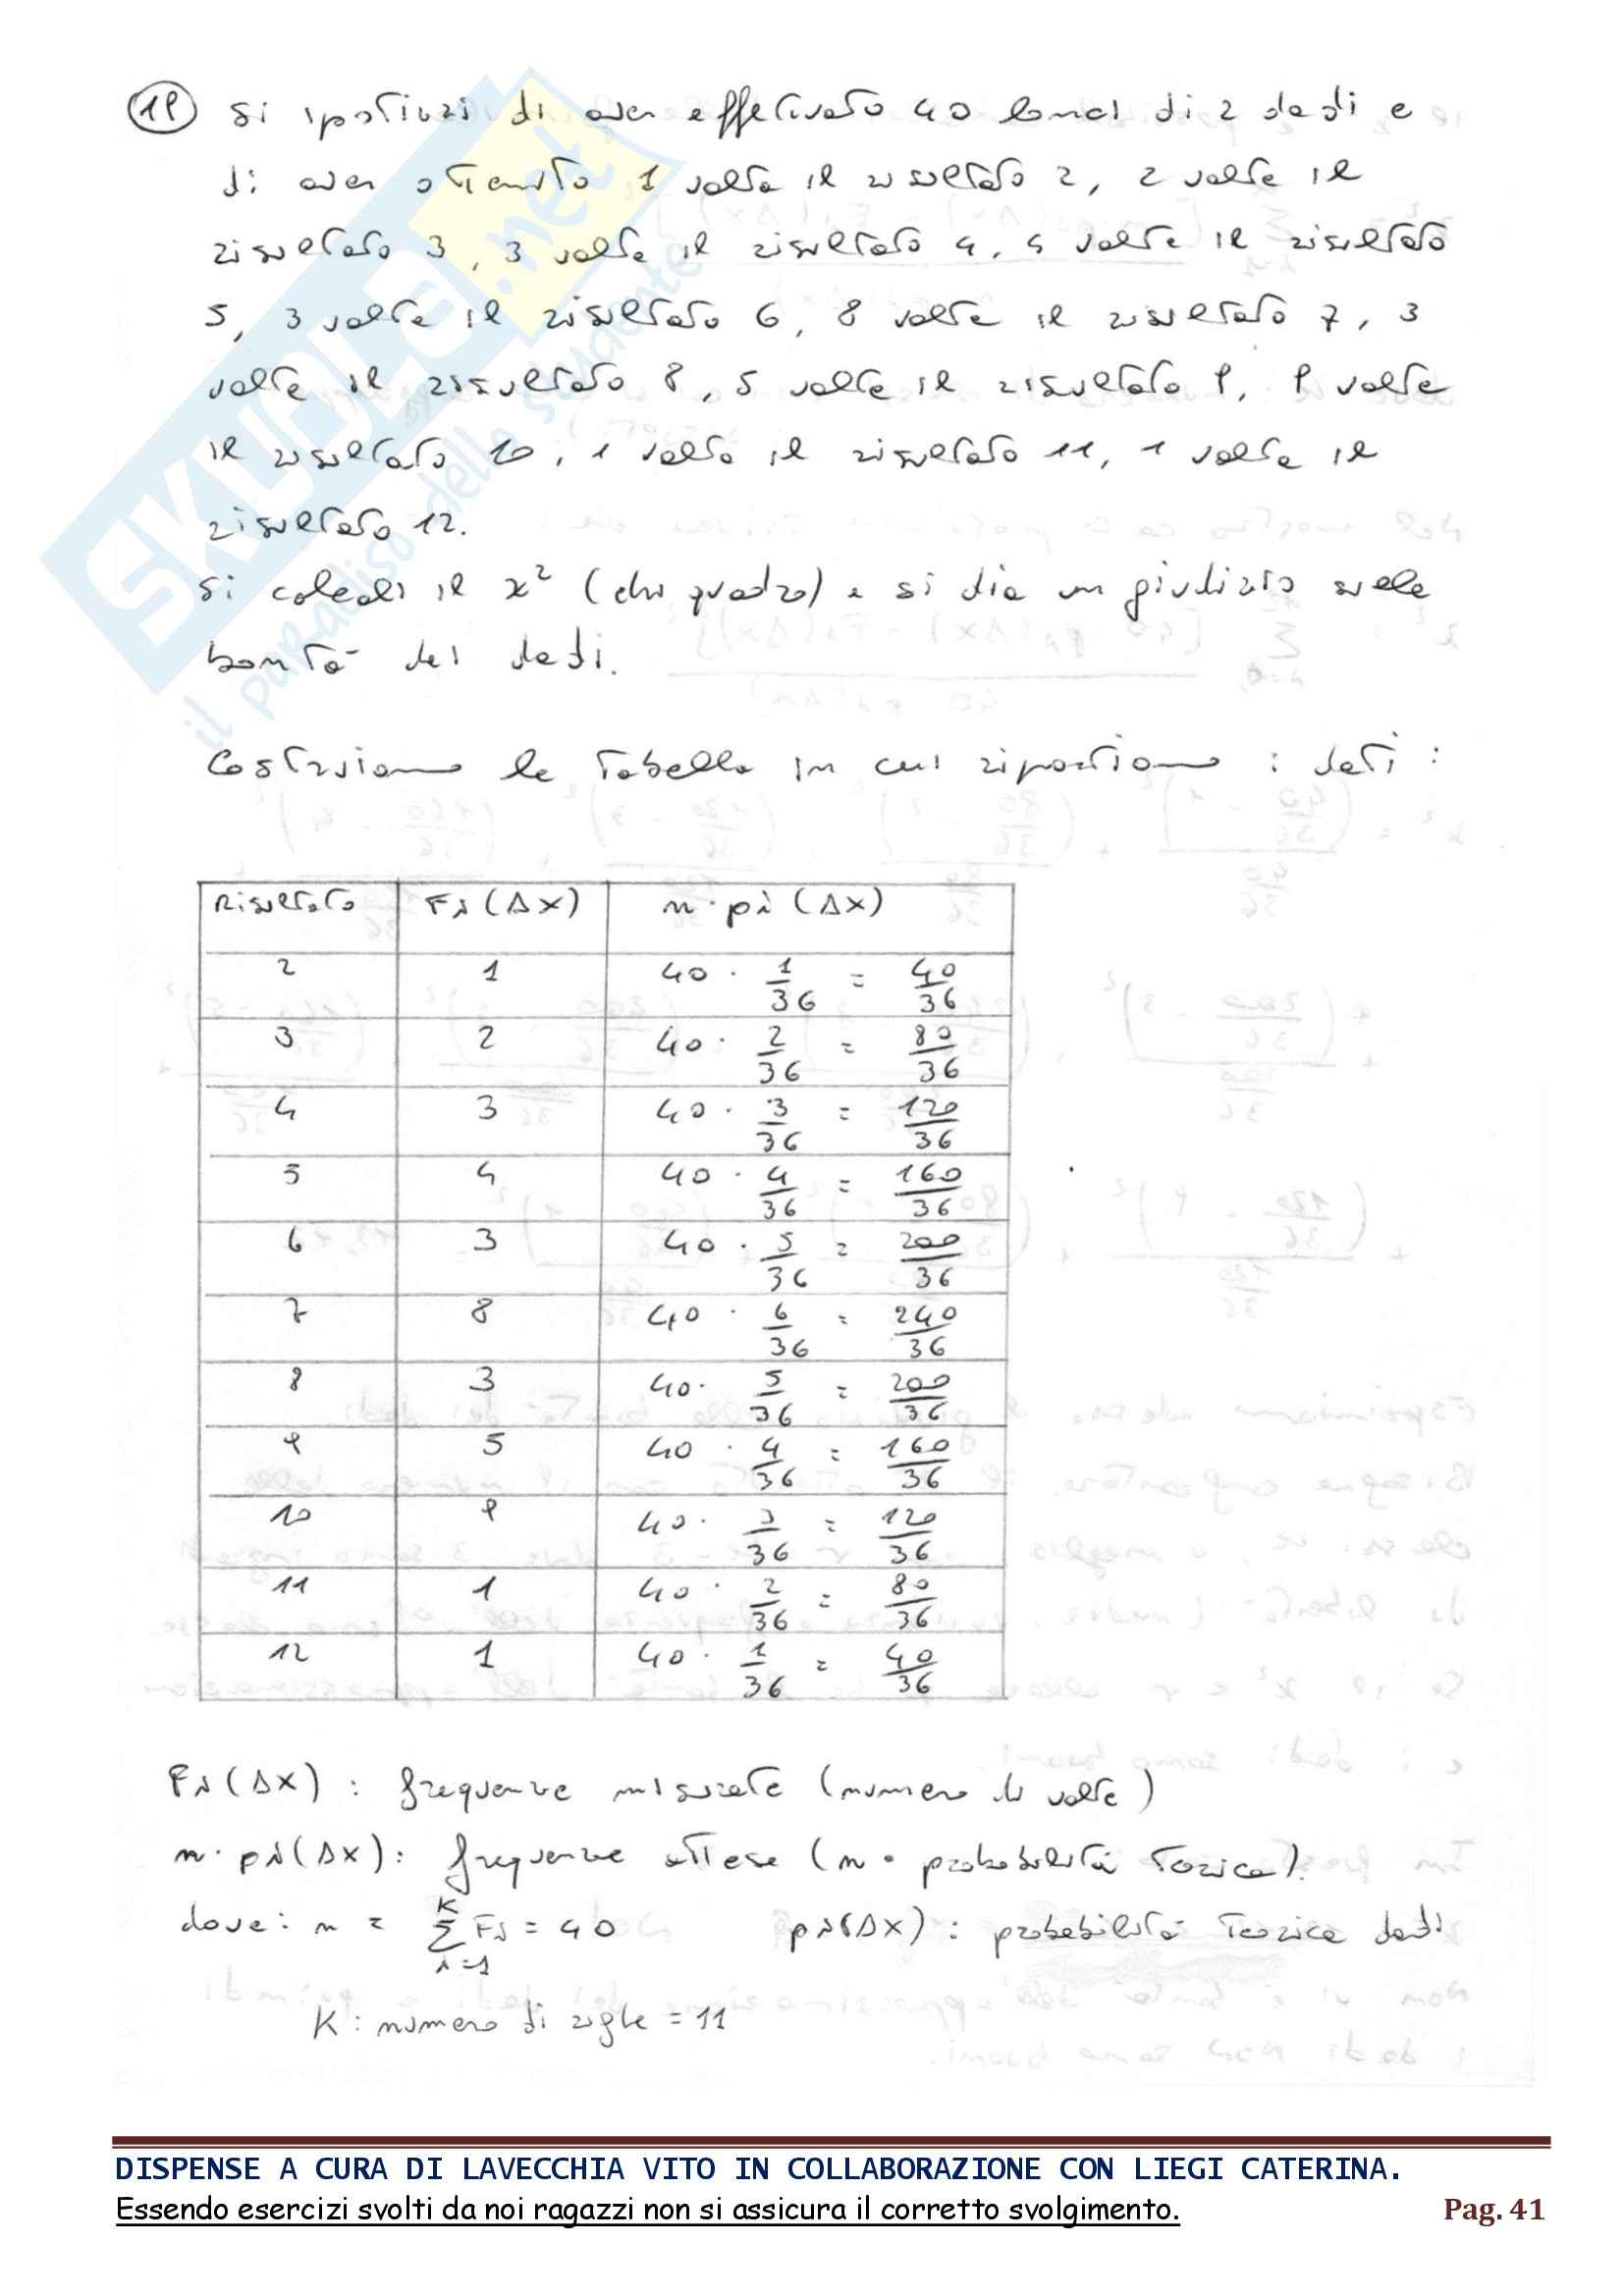 19 Si ipotizzi di aver effettuato 40 lanci di 2 dadi e
di aver ottenuto 1 volta il risultato 2, 2 volte il
risultato 3, 3 volte il risultato 4, 4 volte il risultato
5, 3 volte il risultato 6, 8 volte il risultato 7, 3
volte il risultato 8, 5 volte il risultato 9, 9 volte
il risultato 10, 1 volta il risultato 11, 1 volta il
risultato 12.
Si calcoli il x² (chi quadro) e si dia un giudizio sulla
bontà dei dadi.
Costruiamo la tabella in cui riportiamo i dati:
Risultato Fi (Δx) n · pi (Δx)
2 1 40 · 1/36 = 40/36
3 2 40 · 2/36 = 80/36
4 3 40 · 3/36 = 120/36
5 4 40 · 4/36 = 160/36
6 3 40 · 5/36 = 200/36
7 8 40 · 6/36 = 240/36
8 3 40 · 5/36 = 200/36
9 5 40 · 4/36 = 160/36
10 9 40 · 3/36 = 120/36
11 1 40 · 2/36 = 80/36
12 1 40 · 1/36 = 40/36
Fi (Δx) : frequenze misurate (numero di volte)
n · pi (Δx) : frequenze attese (n · probabilità teorica).
dove: n = K Σ i=1 Fi = 40 pi(Δx) : probabilità teorica dadi
K : numero di righe = 11
SKUOLA.net
il paradiso dello studente
DISPENSE A CURA DI LAVECCHIA VITO IN COLLABORAZIONE CON LIEGI CATERINA.
Essendo esercizi svolti da noi ragazzi non si assicura il corretto svolgimento. Pag. 41